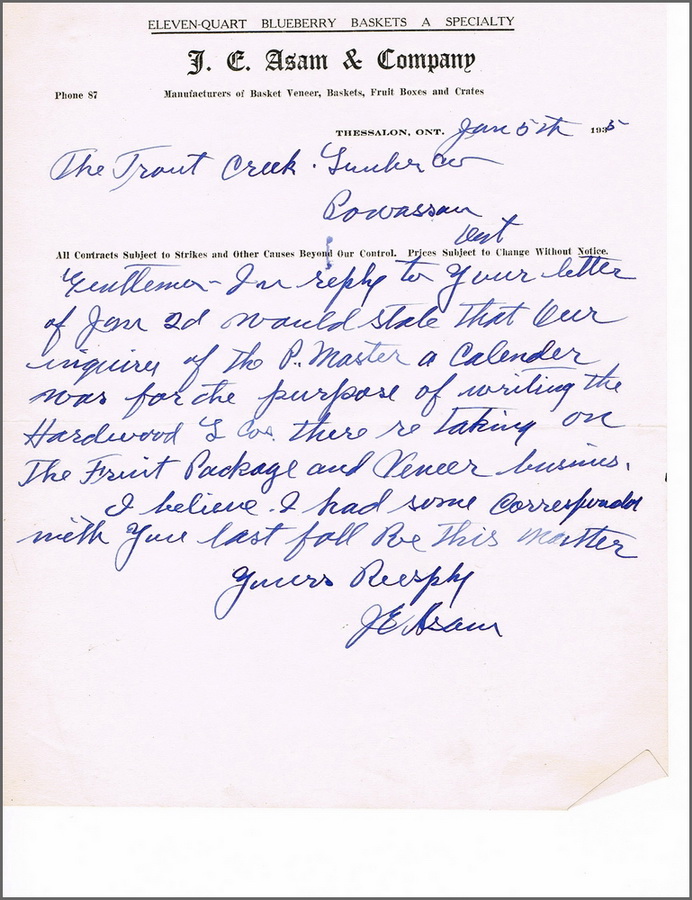 ELEVEN-QUART BLUEBERRY BASKETS A SPECIALTY
J. E. Asam & Company
Phone 87 Manufacturers of Basket Veneer, Baskets, Fruit Boxes and Crates
THESSALON, ONT. Jan 5th 1935
The Trout Creek Lumber Co
Powassan
Ont
All Contracts Subject to Strikes and Other Causes Beyond Our Control. Prices Subject to Change Without Notice.
Gentlemen - In reply to your letter
of Jan 2d would state that our
inquirey of the P. Master a Calender
was for the purpose of writing the
Hardwood L Co. there re taking on
The Fruit Package and Veneer
I believe I had some
with you last fall Re this matter
Yours
JE Asam